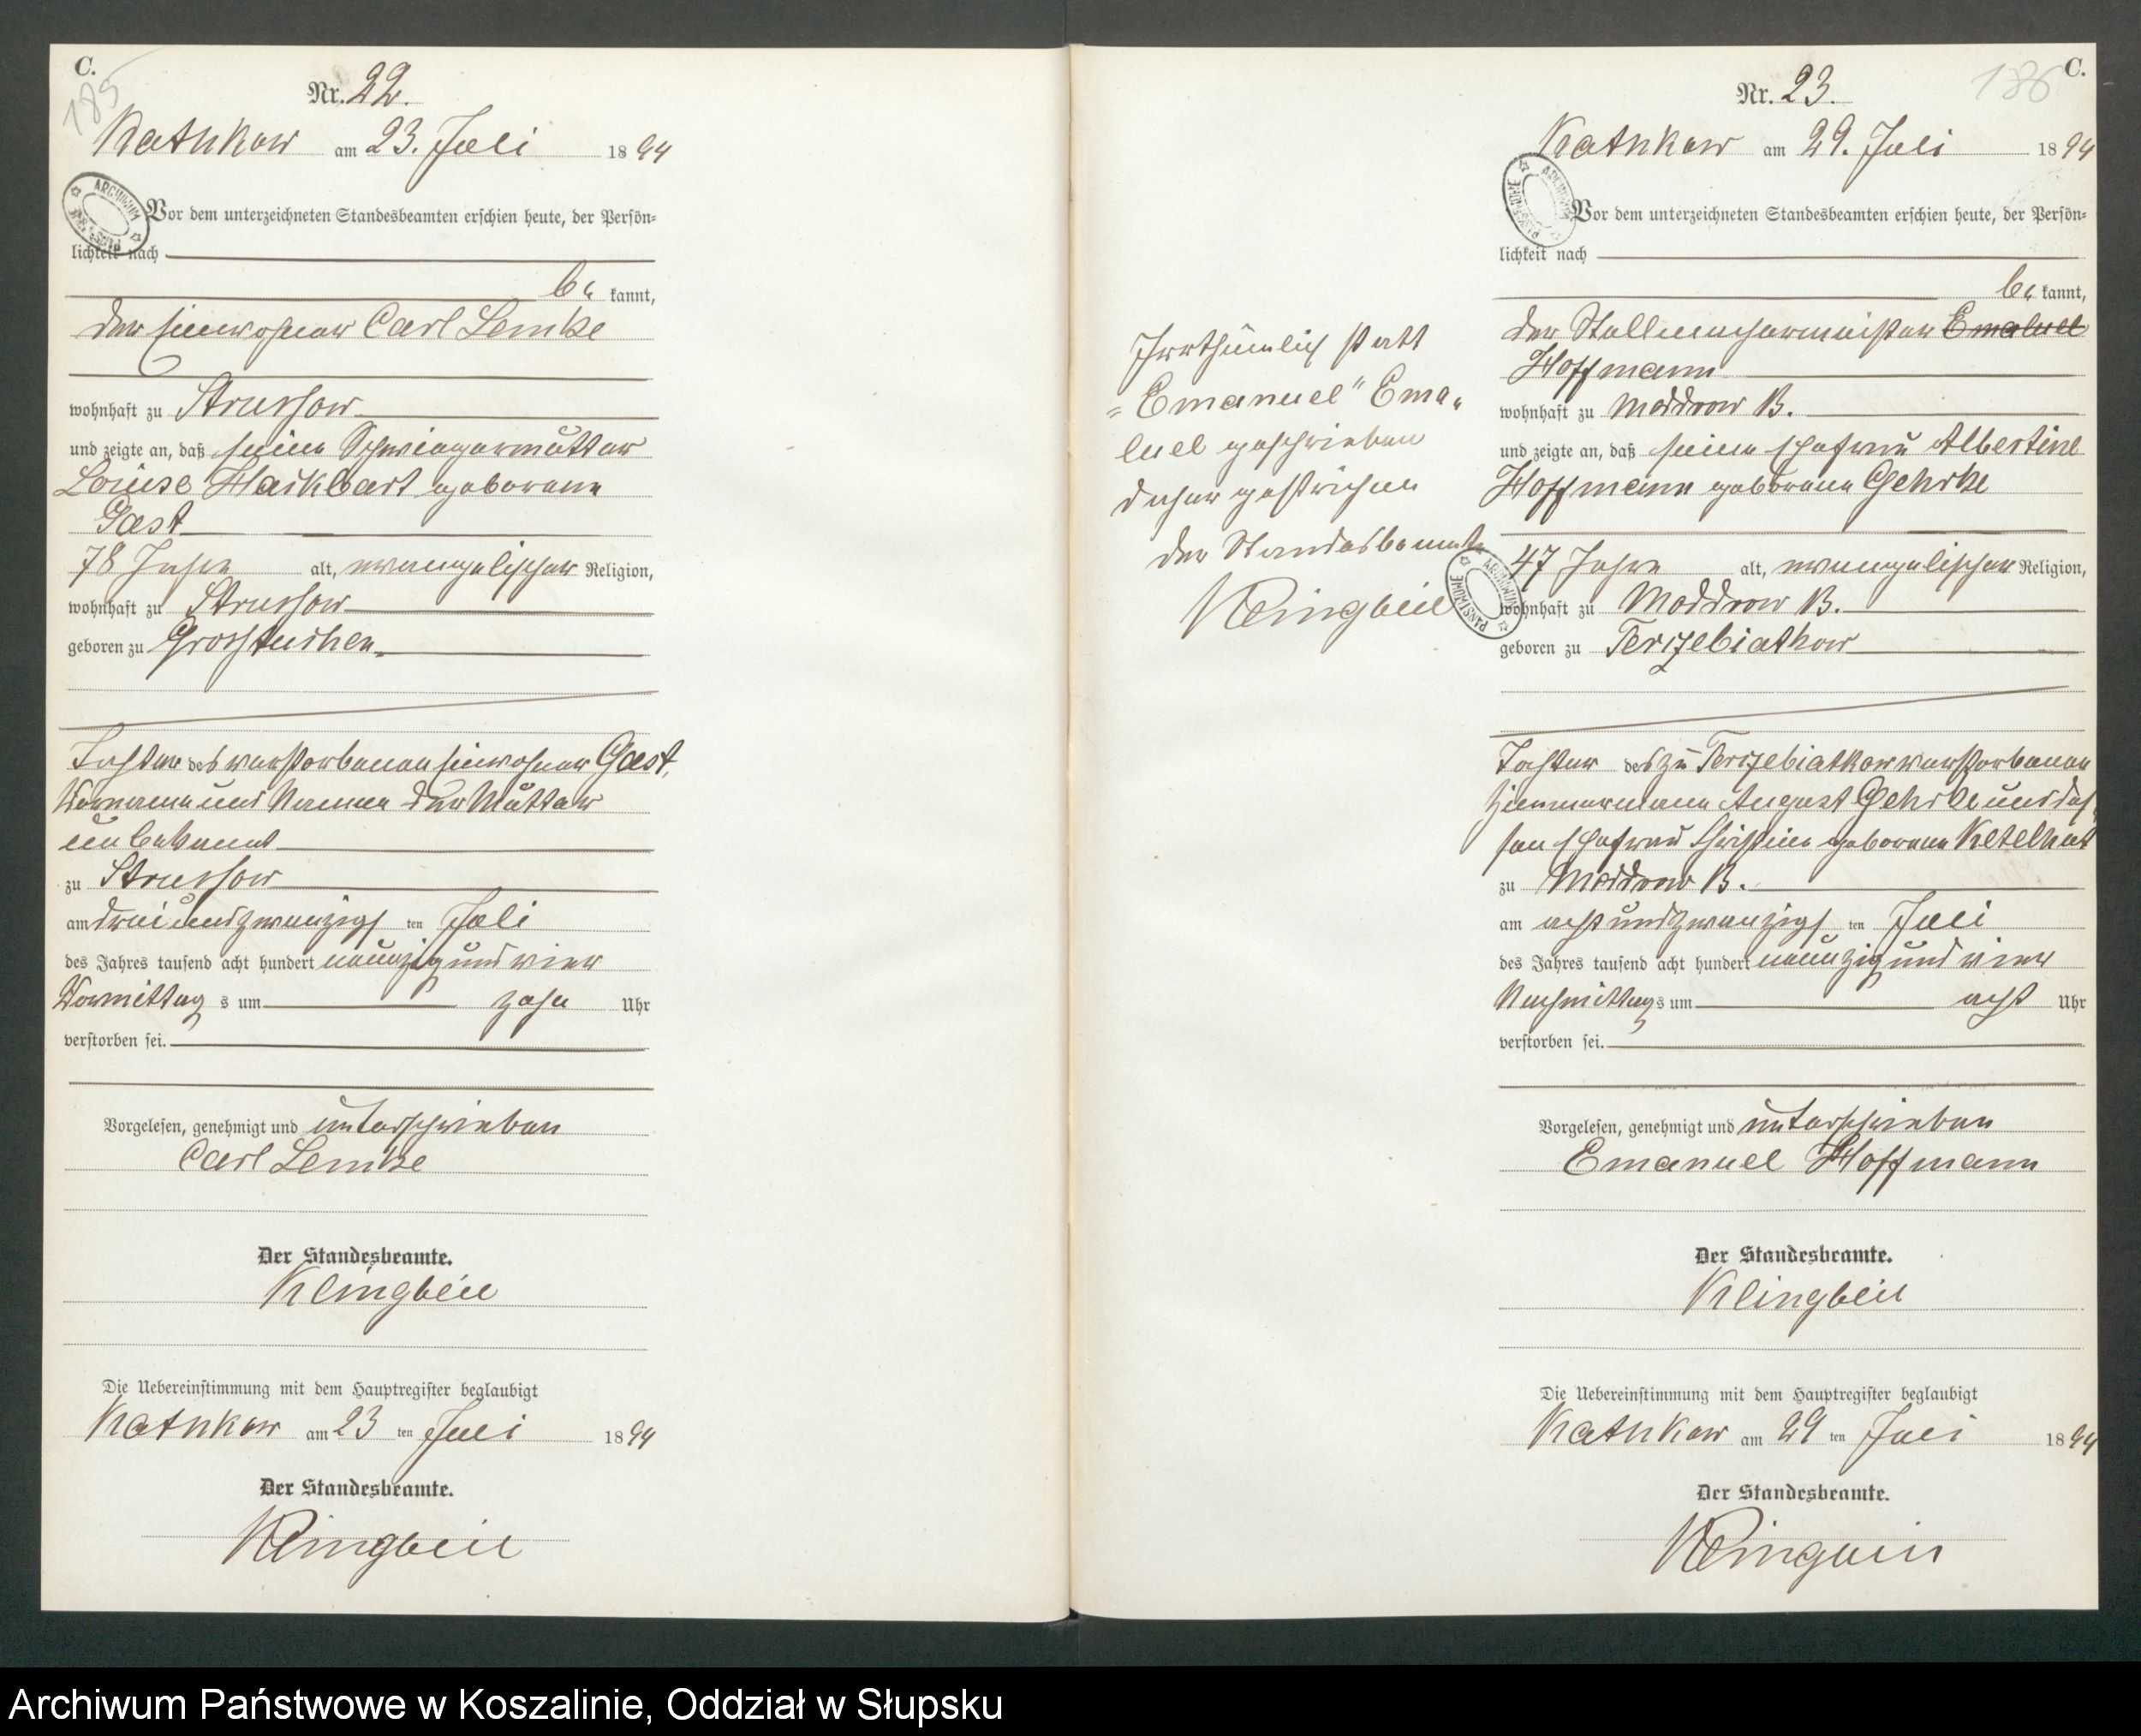 C.
185
Nr. 22.
Kathkow am 23. Juli 1894
Vor dem unterzeichneten Standesbeamten erschien heute, der Persön-
lichkeit nach
be kannt,
der Einwohner Carl Lemke
wohnhaft zu Strussow
und zeigte an, daß seine Schwiegermutter
Louise Hackbart geborene
Gast
78 Jahre alt, evangelischer Religion,
wohnhaft zu Strussow
geboren zu Grosstuchen
Tochter des verstorbenen Einwohner Gast,
Vorname und Namen der Mutter
unbekannt
zu Strussow
am drei und zwanzigs ten Juli
des Jahres tausend acht hundert neunzig und vier
Vormittag s um zehn Uhr
verstorben sei.
Vorgelesen, genehmigt und unterschrieben
Carl Lemke
Der Standesbeamte.
Klingbeil
Die Uebereinstimmung mit dem Hauptregister beglaubigt
Kathkow am 23 ten Juli 1894
Der Standesbeamte.
Klingbeil
Irrthümlich statt
"Emanuel" Ema-
luel geschrieben
daher gestrichen
der Standesbeamte
Klingbeil
C.
186
Nr. 23.
Kathkow am 29. Juli 1894
Vor dem unterzeichneten Standesbeamten erschien heute, der Persön-
lichkeit nach
be kannt,
der Stellmachermeister Emaluel
Hoffmann
wohnhaft zu Moddrow B.
und zeigte an, daß seine Ehefrau Albertine
Hoffmann geborene Gehrke
47 Jahre alt, evangelischer Religion,
wohnhaft zu Moddrow B.
geboren zu Terszebiatkow
Tochter des zu Terszebiatkow verstorbenen
Zimmermann August Gehrke und des
sen Ehefrau Christine geborene Ketelhut
zu Moddrow B.
am acht und zwanzigs ten Juli
des Jahres tausend acht hundert neunzig und vier
Nachmittag s um acht Uhr
verstorben sei.
Vorgelesen, genehmigt und unterschrieben
Emanuel Hoffmann
Der Standesbeamte.
Klingbeil
Die Uebereinstimmung mit dem Hauptregister beglaubigt
Kathkow am 29 ten Juli 1894
Der Standesbeamte.
Klingbeil
ARCHIWUM PAŃSTWOWE
Archiwum Państwowe w Koszalinie, Oddział w Słupsku